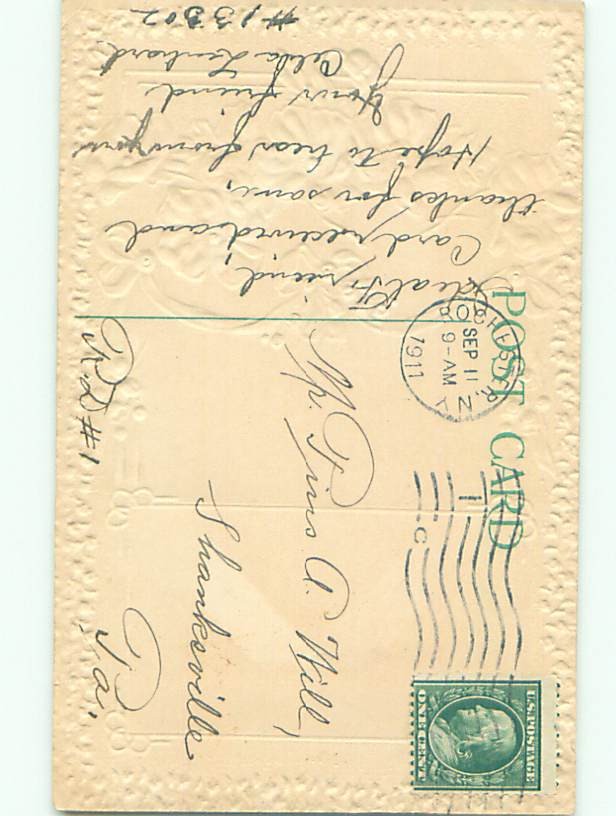 POST CARD
ROCHESTER
SEP 11
9-AM
1911
N.Y.
1
C
U.S. POSTAGE
ONE CENT
Dear Friend,
Card received and
thanks for same,
Hope to hear from you
Your friend
Celda Lenhard
#13302
Mr. Tires A. Will,
Shanksville
Pa.
R.D #1